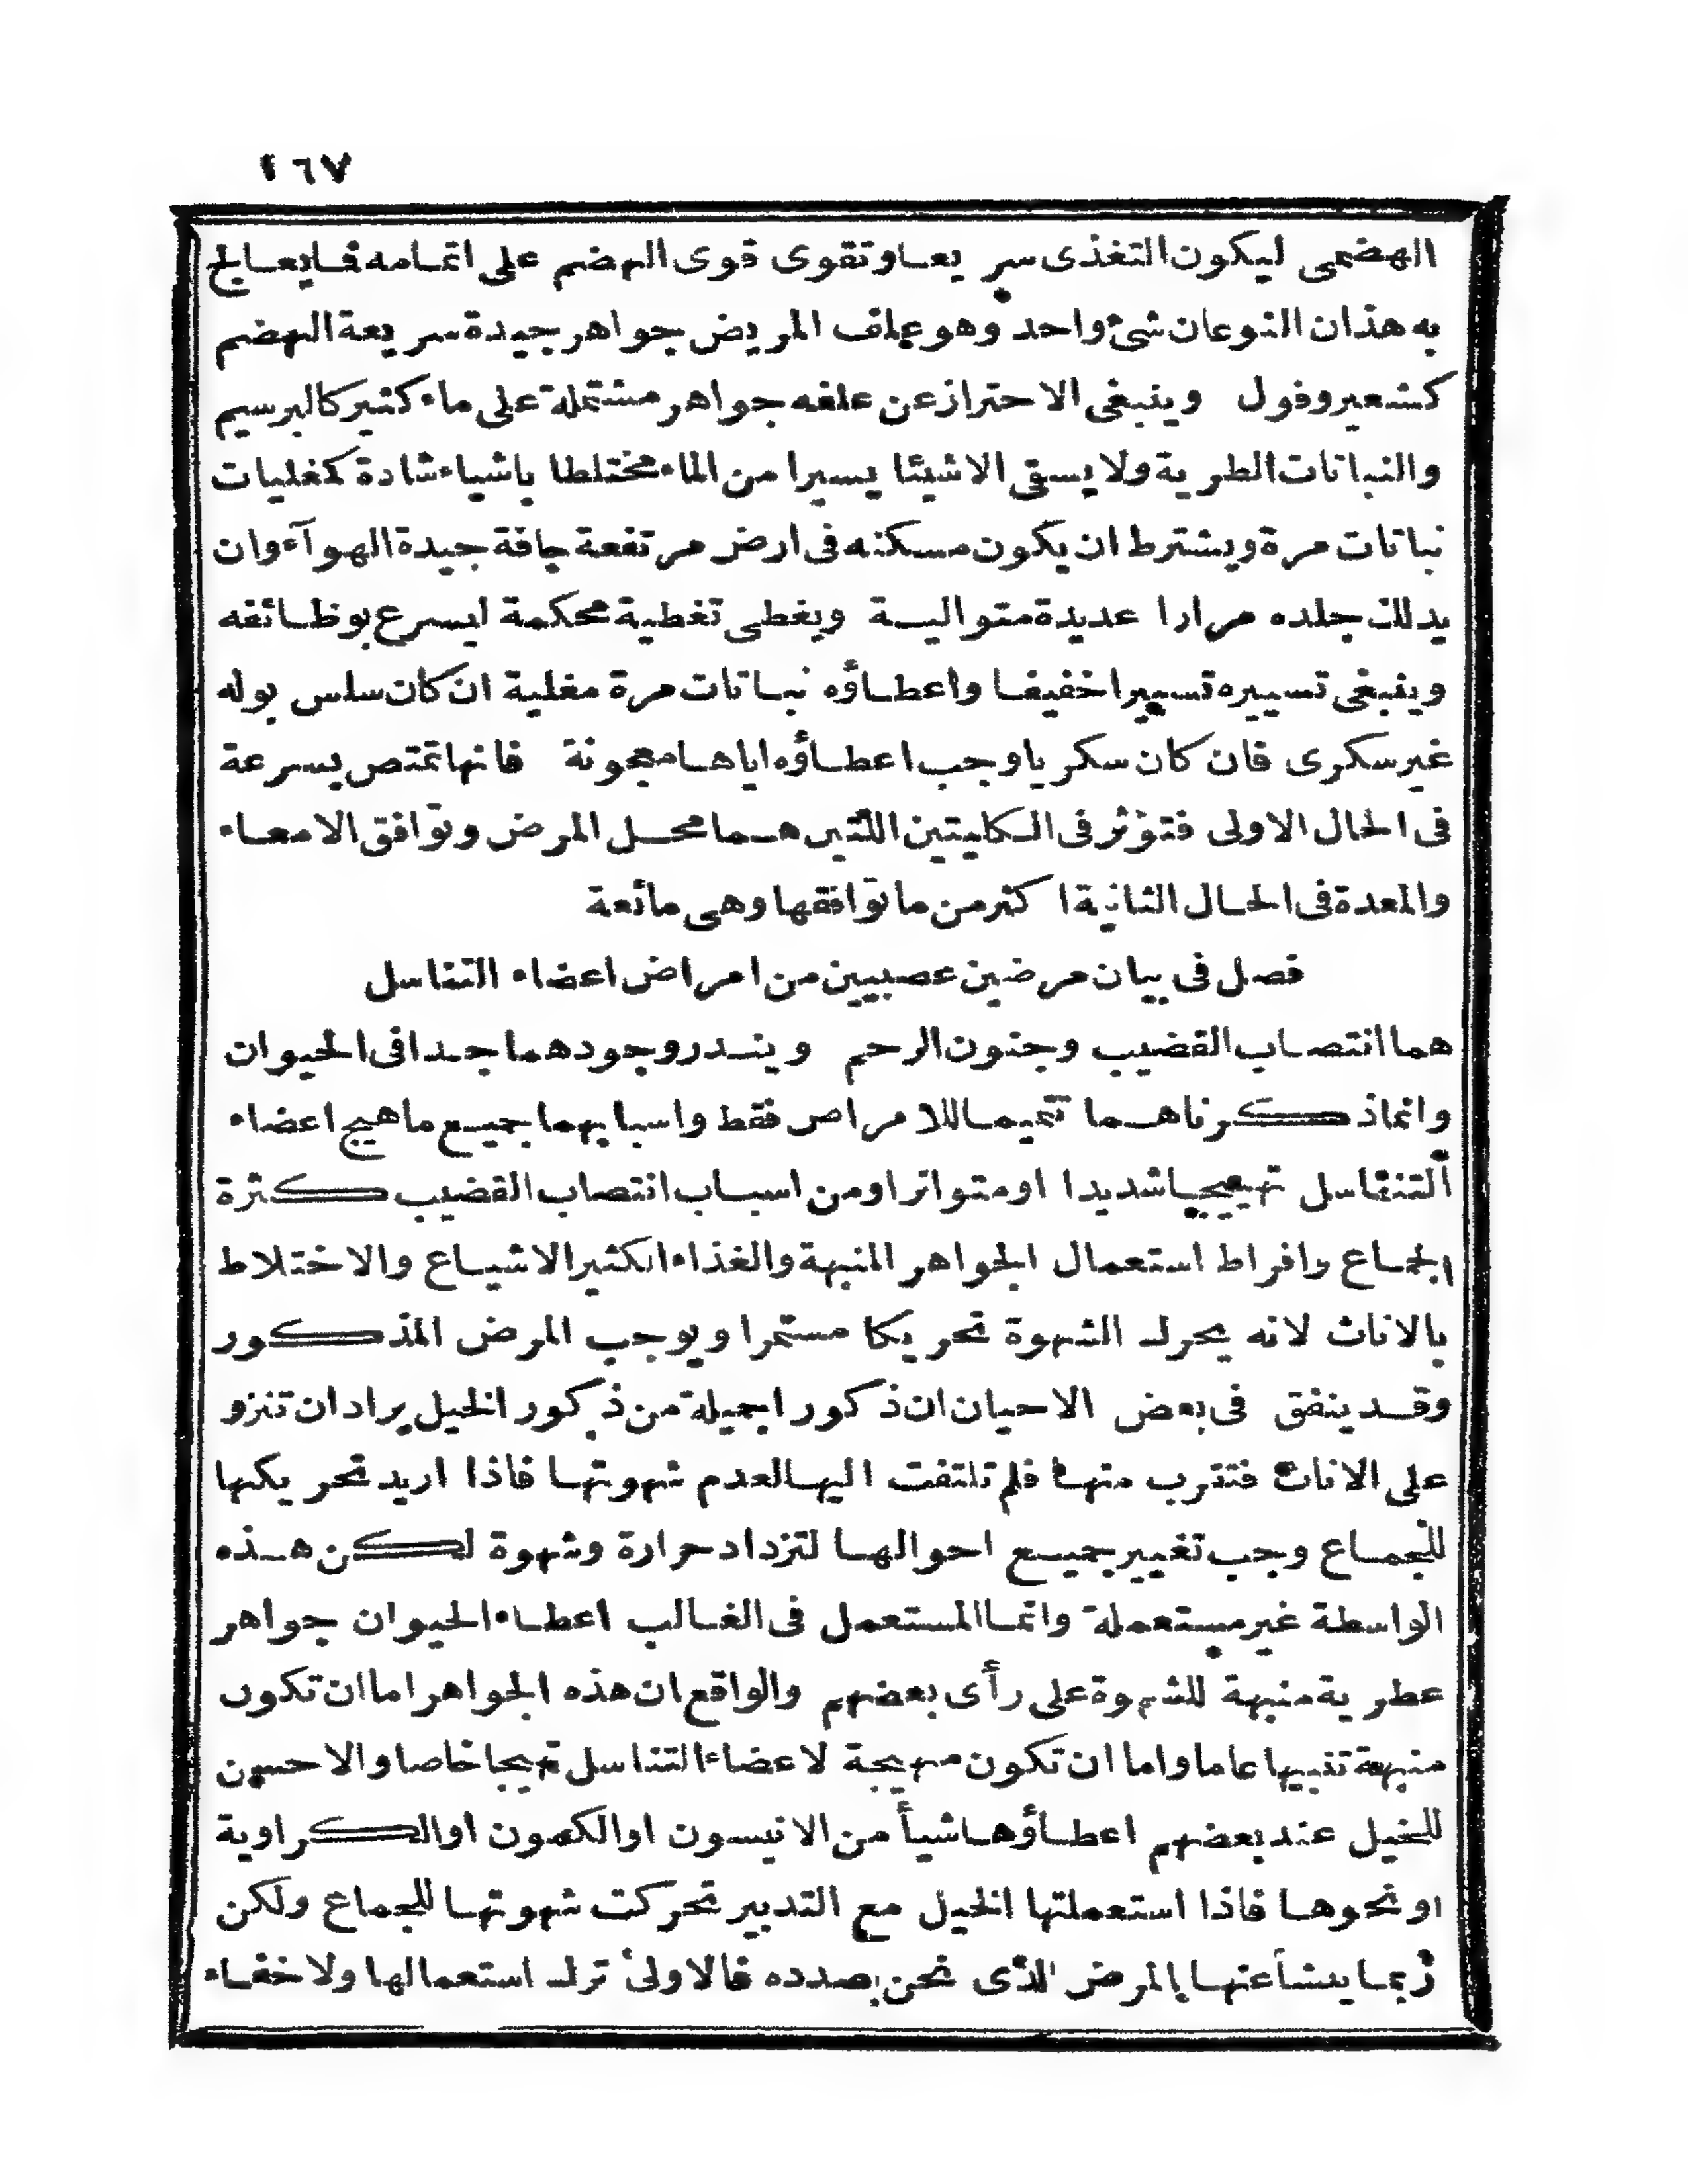 ١٦٧
الهضمى ليكون التغذى سريعا وتقوى قوى الهضم على اتمامه فايعالج
به هذان النوعان شئ واحد وهو علف المريض جواهر جيدة سريعة الهضم
كشعير وفول وينبغى الاحتراز عن علفه جواهر مشتملة على ماء كثير كالبرسيم
والنباتات الطرية ولا يسقى الاشيئا يسيرا من الماء مختلطا باشياء شادة كمغليات
نباتات مرة ويشترط ان يكون مسكنه فى ارض مرتفعة جافة جيدة الهوآء وان
يدلك جلده مرارا عديدة متوالية ويغطى تغطية محكمة ليسرع بوظائفه
وينبغى تسييره تسييرا خفيفا واعطاؤه نباتات مرة مغلية ان كان سلس بوله
غير سكرى فان كان سكريا وجب اعطاؤه اياها معجونة فانها تمتص بسرعة
فى الحال الاولى فتؤثر فى الكليتين اللتين هما محل المرض وتوافق الامعاء
والمعدة فى الحال الثانية اكثر من ما توافقها وهى مائعة
فصل فى بيان مرضين عصبيين من امراض اعضاء التناسل
هما انتصاب القضيب وجنون الرحم ويندر وجودهما جدا فى الحيوان
وانما ذكرناهما تتميما للامراض فقط واسبابهما جميع ماهيج اعضاء
التناسل تهييجا شديدا او متواترا ومن اسباب انتصاب القضيب كثرة
الجماع وافراط استعمال الجواهر المنبهة والغذاء الكثير الاشباع والاختلاط
بالاناث لانه يحرك الشهوة تحريكا مستمرا ويوجب المرض المذكور
وقد يتفق فى بعض الاحيان ان ذكورا جميلة من ذكور الخيل يراد ان تنزو
على الاناث فتقرب منها فلم تلتفت اليها لعدم شهوتها فاذا اريد تحريكها
للجماع وجب تغيير جميع احوالها لتزداد حرارة وشهوة لكن هذه
الواسطة غير مستعملة وانما المستعمل فى الغالب اعطاء الحيوان جواهر
عطرية منبهة للشهوة على رأى بعضهم والواقع ان هذه الجواهر اما ان تكون
منبهة تنبيها عاما واما ان تكون مهيجة لاعضاء التناسل تهيجا خاصا والاحسن
للخيل عند بعضهم اعطاؤها شيأ من الانيسون او الكمون او الكراوية
او نحوها فاذا استعملتها الخيل مع التدبير تحركت شهوتها للجماع ولكن
ربما ينشأ عنها المرض الذى نحن بصدده فالاولى ترك استعمالها ولا خفاء